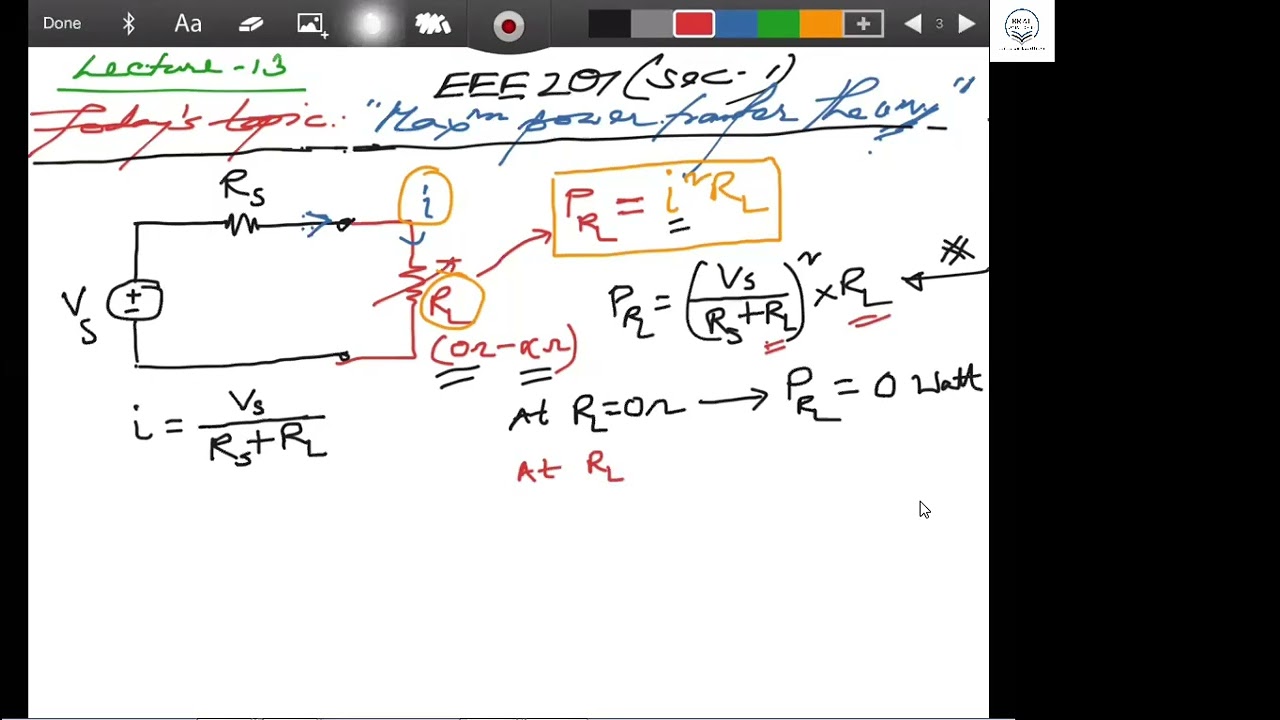 Done Aa 3
Lecture-13
EEE 207 (sec-1)
Today's topic: "Maxm power transfer theory"
R_S
i
P_{R_L} = i² R_L
V_S
+
-
R_L
P_{R_L} = (V_S / (R_S + R_L))² × R_L
(0Ω - ∝Ω)
i = V_S / (R_S + R_L)
At R_L = 0Ω → P_{R_L} = 0 Watt
At R_L